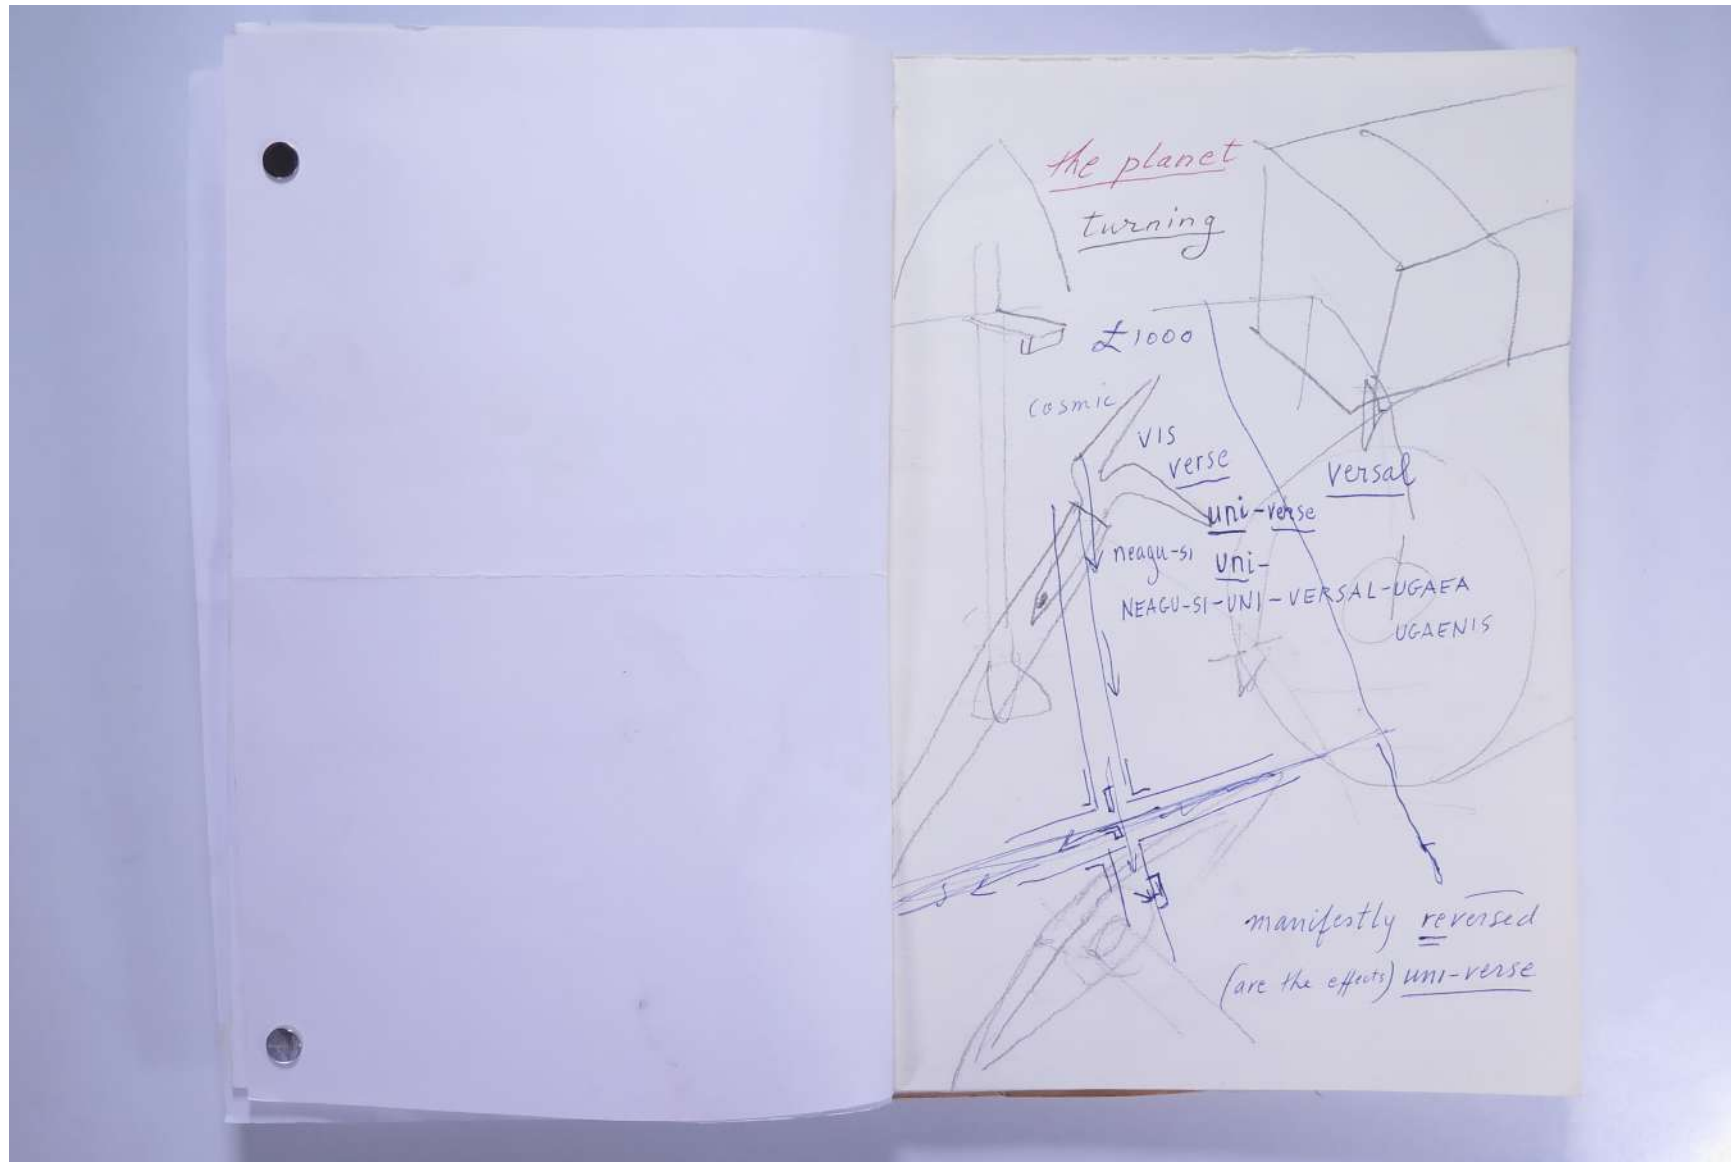 the planet
turning
£1000
cosmic
VIS
verse
versal
uni-verse
neagu-si uni-
NEAGU-SI-UNI-VERSAL-UGAEA
UGAENIS
manifestly reversed
(are the effects) uni-verse